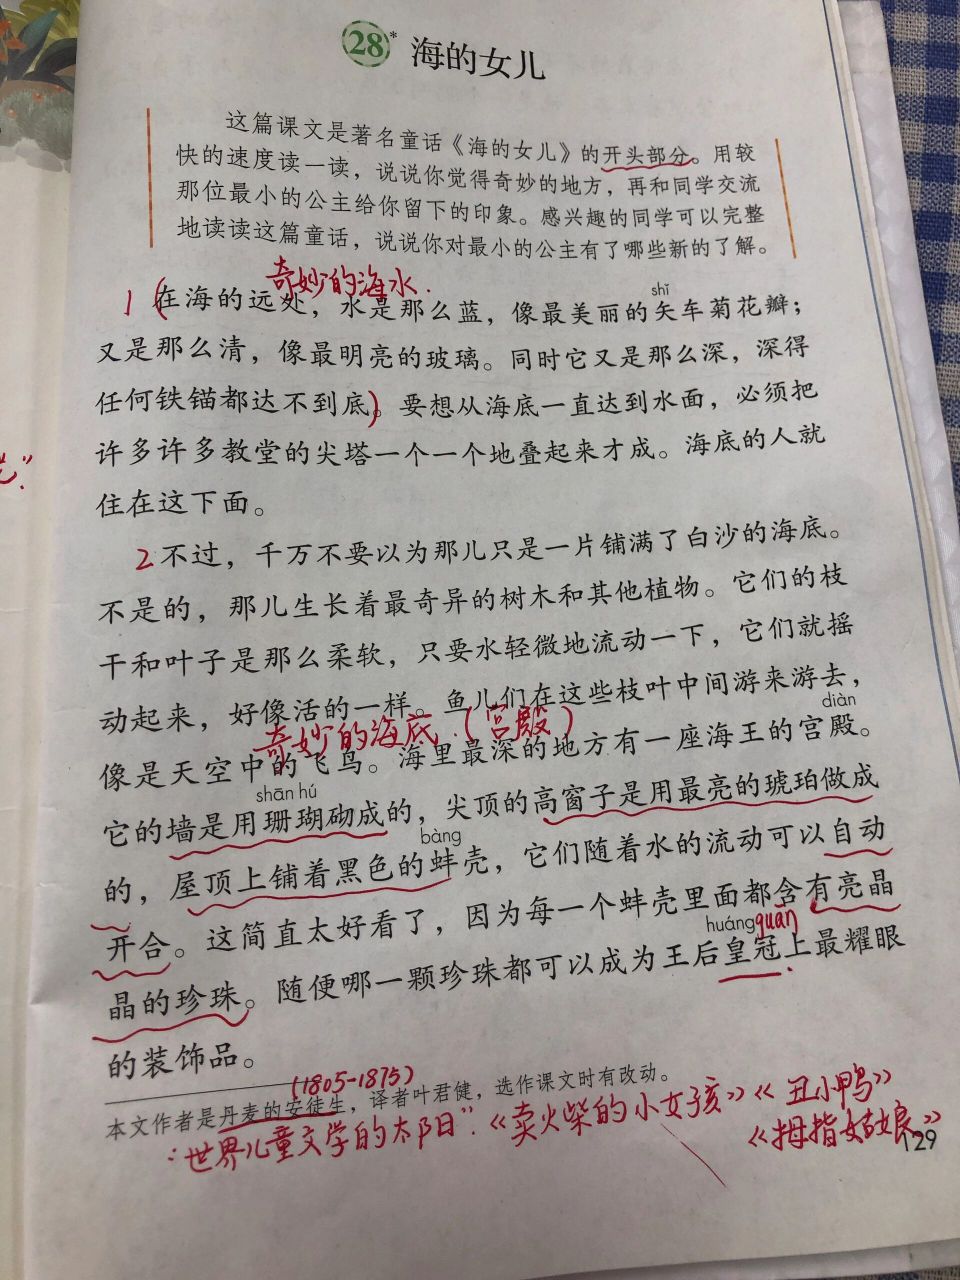 28* 海的女儿
这篇课文是著名童话《海的女儿》的开头部分。用较
快的速度读一读，说说你觉得奇妙的地方，再和同学交流
那位最小的公主给你留下的印象。感兴趣的同学可以完整
地读读这篇童话，说说你对最小的公主有了哪些新的了解。
奇妙的海水.
shǐ
1(在海的远处，水是那么蓝，像最美丽的矢车菊花瓣；
又是那么清，像最明亮的玻璃。同时它又是那么深，深得
任何铁锚都达不到底)。要想从海底一直达到水面，必须把
许多许多教堂的尖塔一个一个地叠起来才成。海底的人就
住在这下面。
2不过，千万不要以为那儿只是一片铺满了白沙的海底。
不是的，那儿生长着最奇异的树木和其他植物。它们的枝
干和叶子是那么柔软，只要水轻微地流动一下，它们就摇
动起来，好像活的一样。鱼儿们在这些枝叶中间游来游去，
奇妙的海底.(宫殿)
diàn
像是天空中的飞鸟。海里最深的地方有一座海王的宫殿。
shān hú
它的墙是用珊瑚砌成的，尖顶的高窗子是用最亮的琥珀做成
bàng
的，屋顶上铺着黑色的蚌壳，它们随着水的流动可以自动
开合。这简直太好看了，因为每一个蚌壳里面都含有亮晶
huángguān
晶的珍珠。随便哪一颗珍珠都可以成为王后皇冠上最耀眼
的装饰品。
(1805-1875)
本文作者是丹麦的安徒生，译者叶君健，选作课文时有改动。
:“世界儿童文学的太阳”.《卖火柴的小女孩》《丑小鸭》
《拇指姑娘》
129